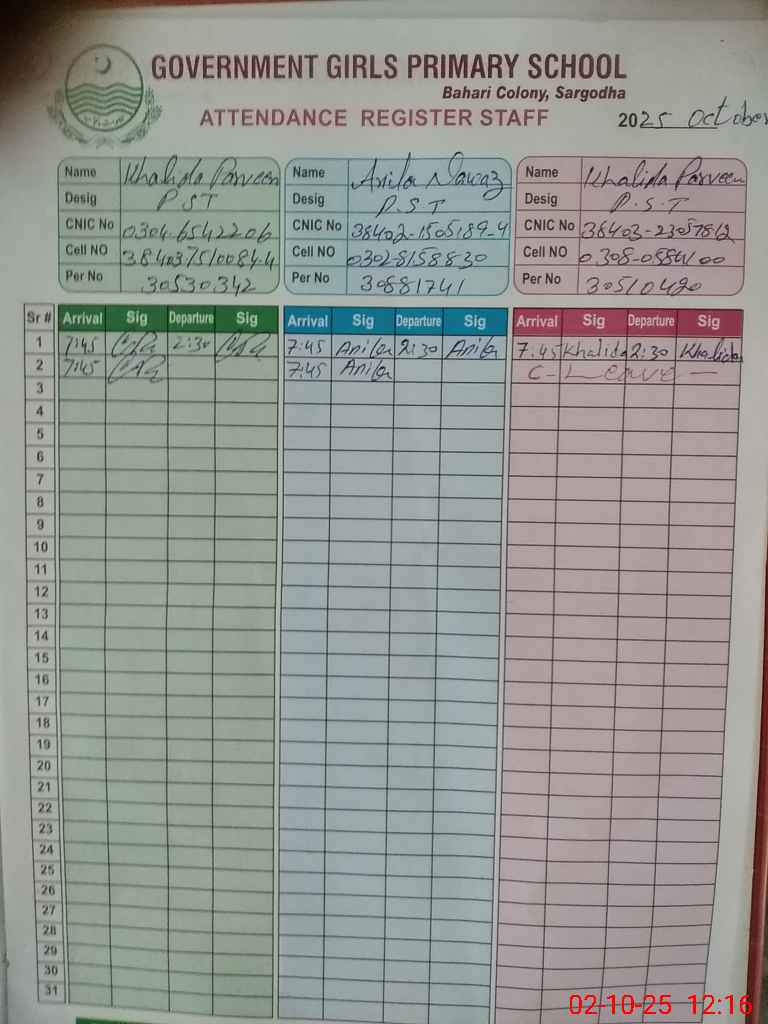 GOVERNMENT GIRLS PRIMARY SCHOOL
Bahari Colony, Sargodha
ATTENDANCE REGISTER STAFF
2025 October
Name Khalida Parveen
Desig P S T
CNIC No 0304-6542206
Cell NO 3840375100844
Per No 30530342
Name Anila Nawaz
Desig P.S T
CNIC No 38402-1505189-4
Cell NO 0302-8158830
Per No 30881741
Name Khalida Parveen
Desig P.S.T
CNIC No
Cell NO
Per No
Sr # Arrival Sig Departure Sig Arrival Sig Departure Sig Arrival Sig Departure Sig
1 7:45 2:30 7:45 Anila 2:30 Anila 7:45 Khalida 2:30 Khalida
2 7:45 7:45 Anila C- Leave —
3
4
5
6
7
8
9
10
11
12
13
14
15
16
17
18
19
20
21
22
23
24
25
26
27
28
29
30
31
02-10-25 12:16